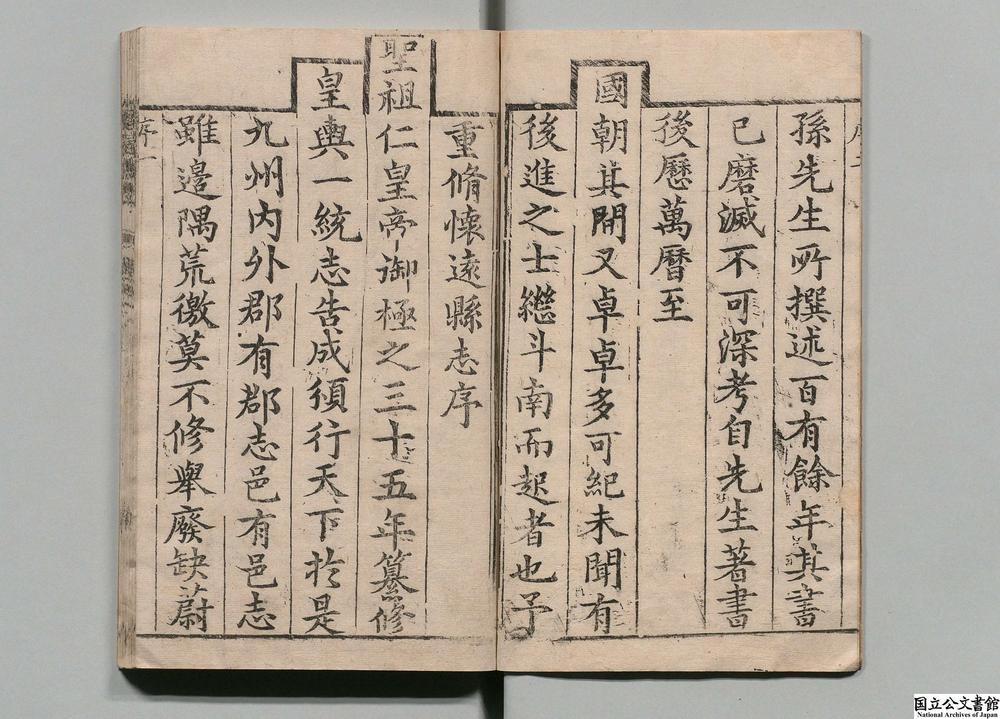 孫先生所撰述百有餘年其書
已磨滅不可深考自先生著書
後歷萬曆至
國朝其間又卓卓多可紀未聞有
後進之士繼斗南而起者也予
重脩懷遠縣志序
聖祖仁皇帝御極之三十五年纂修
皇輿一統志告成頒行天下於是
九州內外郡有郡志邑有邑志
雖邊隅荒徼莫不修舉廢缺蔚
序一
国立公文書館
National Archives of Japan